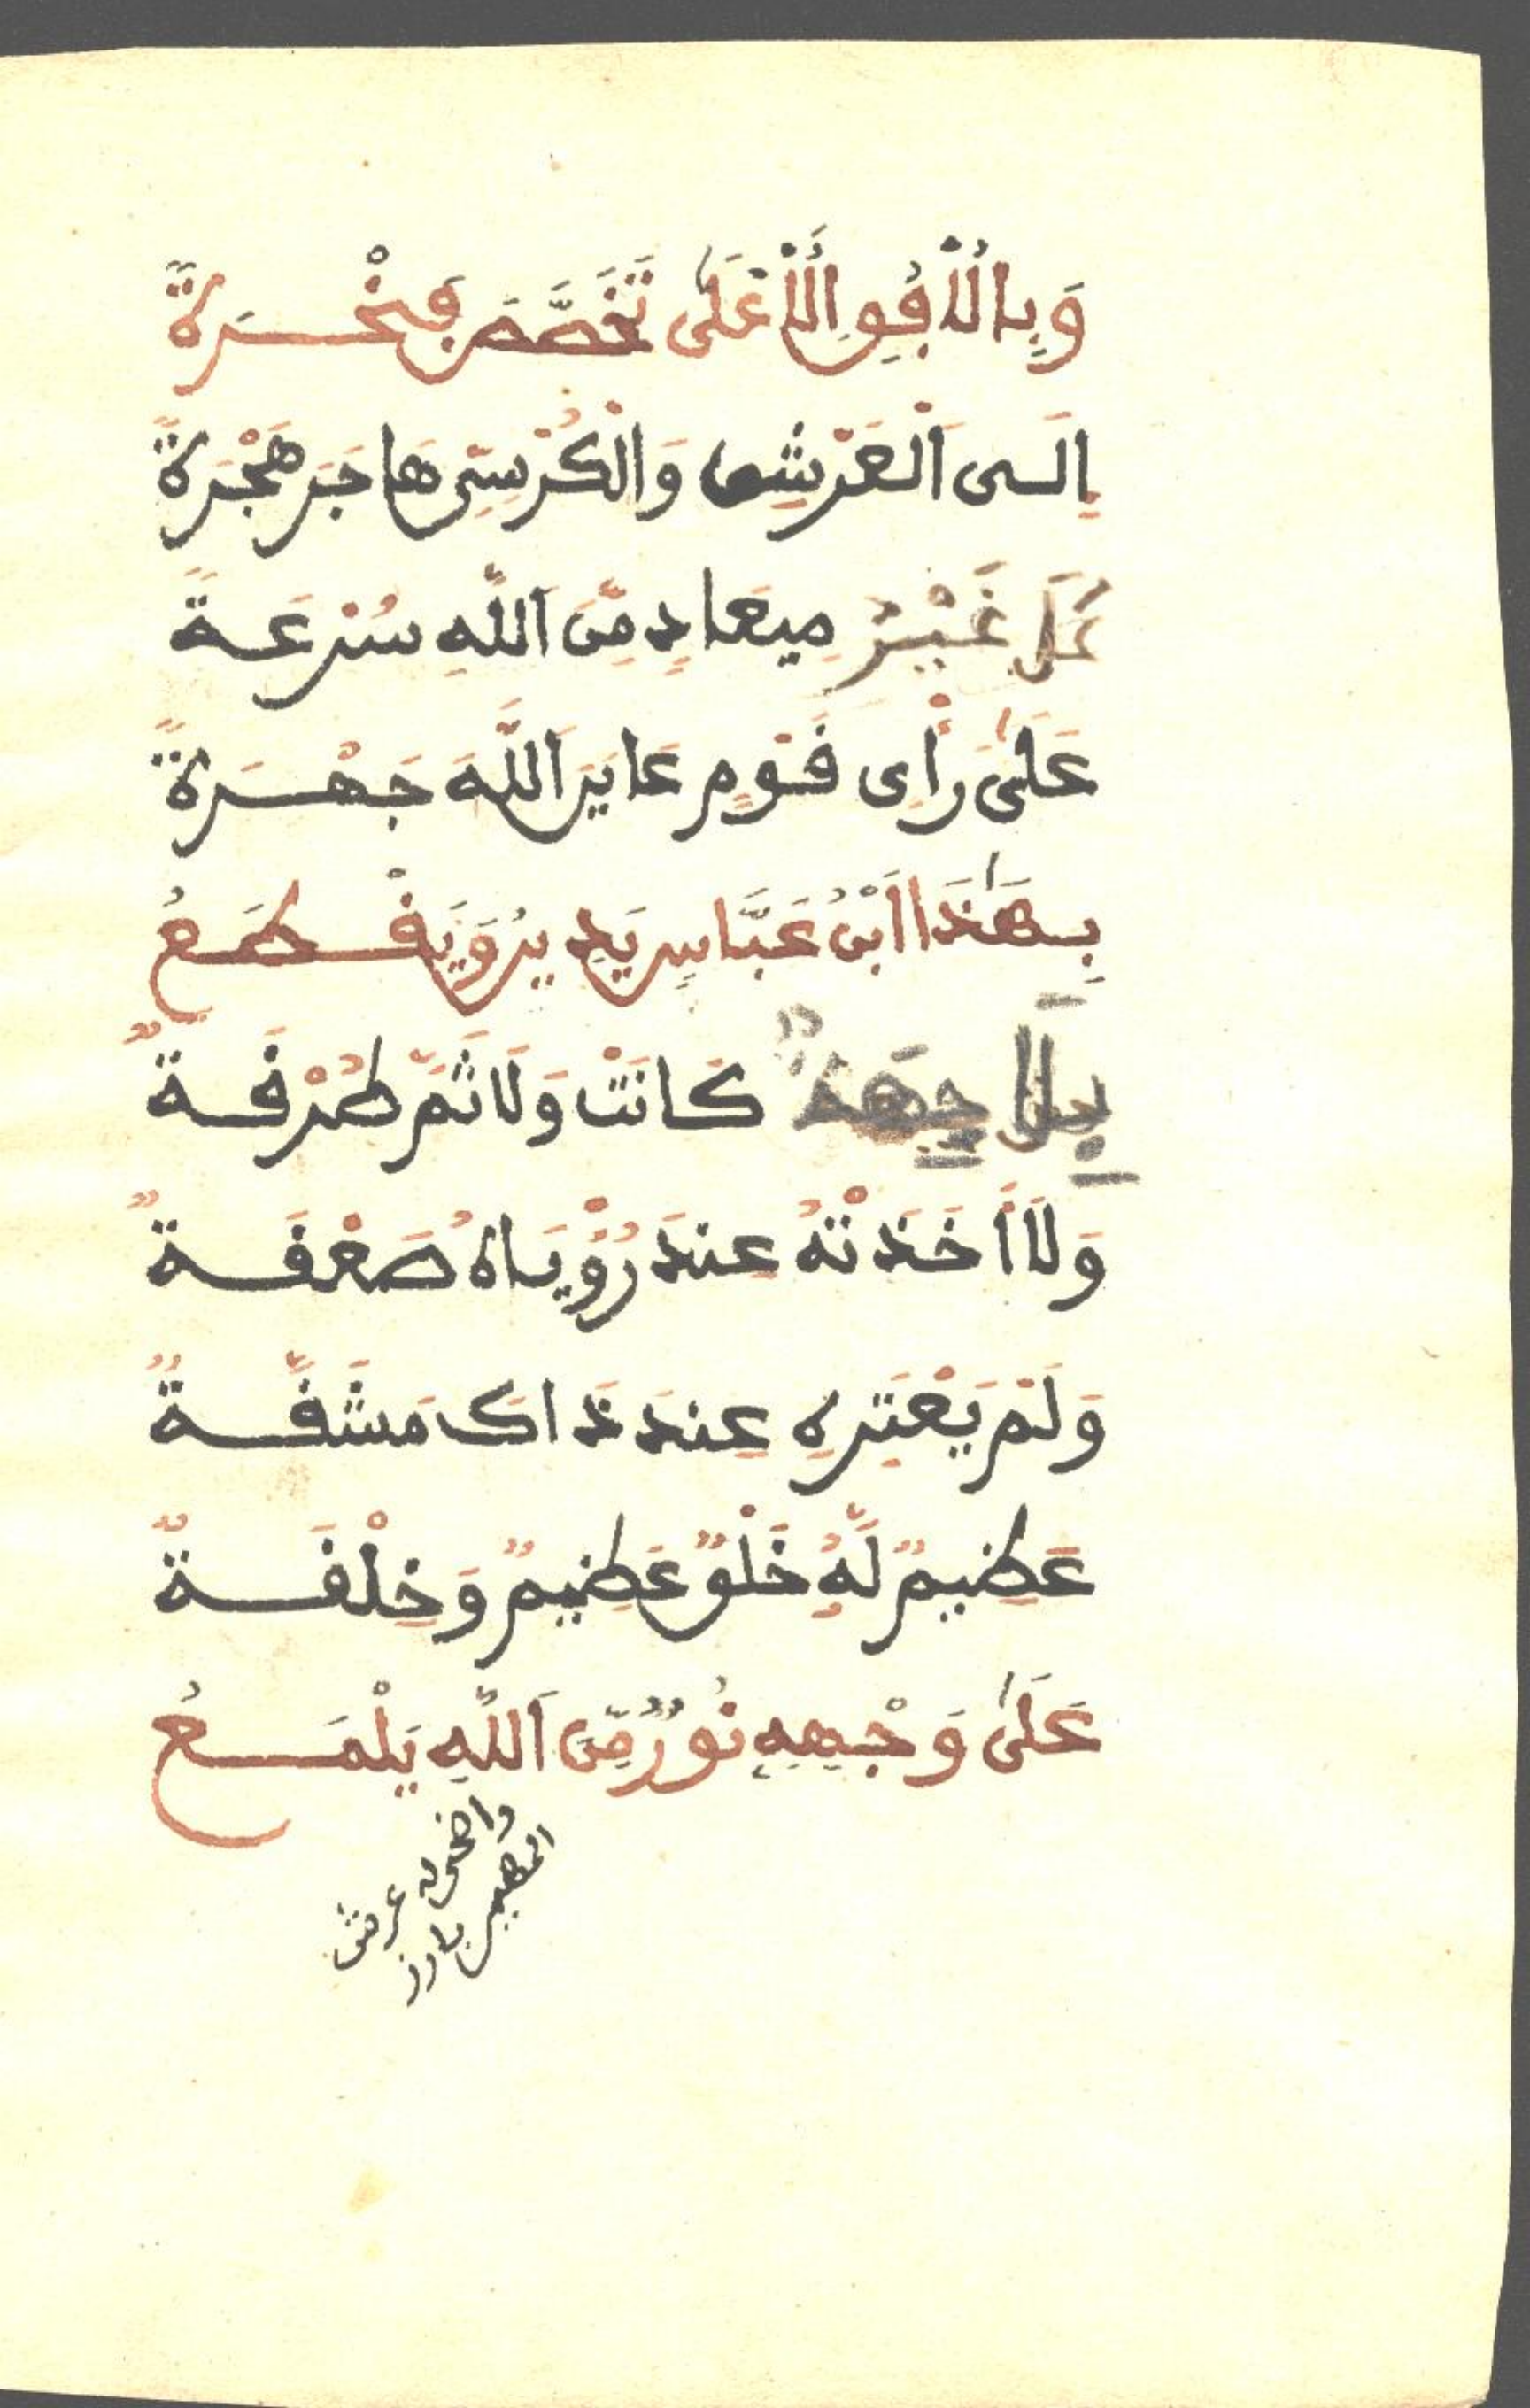 وَبِالْأُفُقِ الْأَعْلَى تَخَصَّصَ فَخْرَةً
إِلَى الْعَرْشِ وَالْكُرْسِيِّ هَاجَرَ هَجْرَةً
عَلَى غَيْرِ مِيعَادٍ مِّنَ اللَّهِ سُرْعَةً
عَلَىٰ رَأْىِ قَوْمٍ عَايَرَ اللَّهَ جَهْرَةً
بِهَٰذَا ابْنُ عَبَّاسٍ يَدِينُ وَيَقْطَعُ
بِلَا جِهَةٍ كَانَتْ وَلَا ثَمَّ طُرْقَةٌ
وَلَا أَخَذَتْهُ عِندَ رُؤْيَاهُ صَعْقَةٌ
وَلَمْ يَعْتَرِهِ عِندَ ذَاكَ مَشَقَّةٌ
عَظِيمٌ لَّهُ خَلْقٌ عَظِيمٌ وَخِلْقَةٌ
عَلَىٰ وَجْهِهِ نُورٌ مِّنَ اللَّهِ يَلْمَعُ